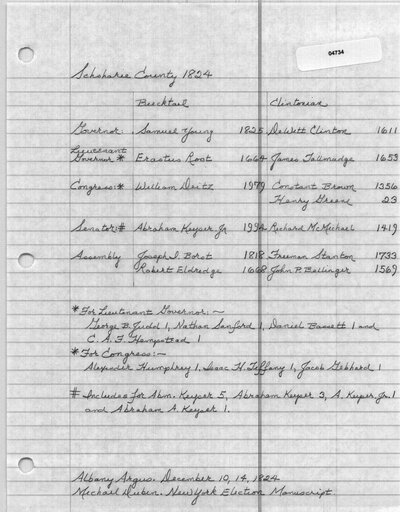 04734
Schoharie County 1824
Bucktail Clintonian
Governor: Samuel Young 1825 DeWitt Clinton 1611
Lieutenant
Governor* Erastus Root 1664 James Tallmadge 1653
Congress:* William Deitz 1979 Constant Brown 1356
Henry Greene 23
Senator:# Abraham Keyser Jr 1994 Richard McMichael 1419
Assembly Joseph I. Borst 1818 Freeman Stanton 1733
Robert Eldredge 1668 John P. Bellinger 1569
* For Lieutenant Governor:~
George B. Judd 1, Nathan Sanford 1, Daniel Bassett 1 and
C. A. F. Hempstead 1
* For Congress:~
Alexander Humphrey 1, Isaac H. Tiffany 1, Jacob Gebhard 1
# Includes for Abm. Keyser 5, Abraham Keyser 3, A. Keyser Jr. 1
and Abraham A. Keyser 1.
Albany Argus. December 10, 14, 1824
Michael Dubin. New York Election Manuscript.